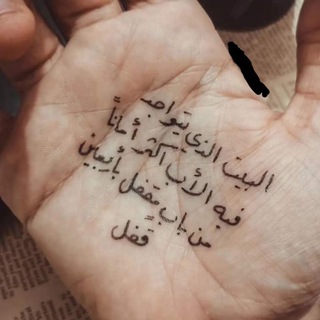 البيت الذي يتواجد
فيه الأب أكثر أماناً
من باب مقفل بأربعين
قفل